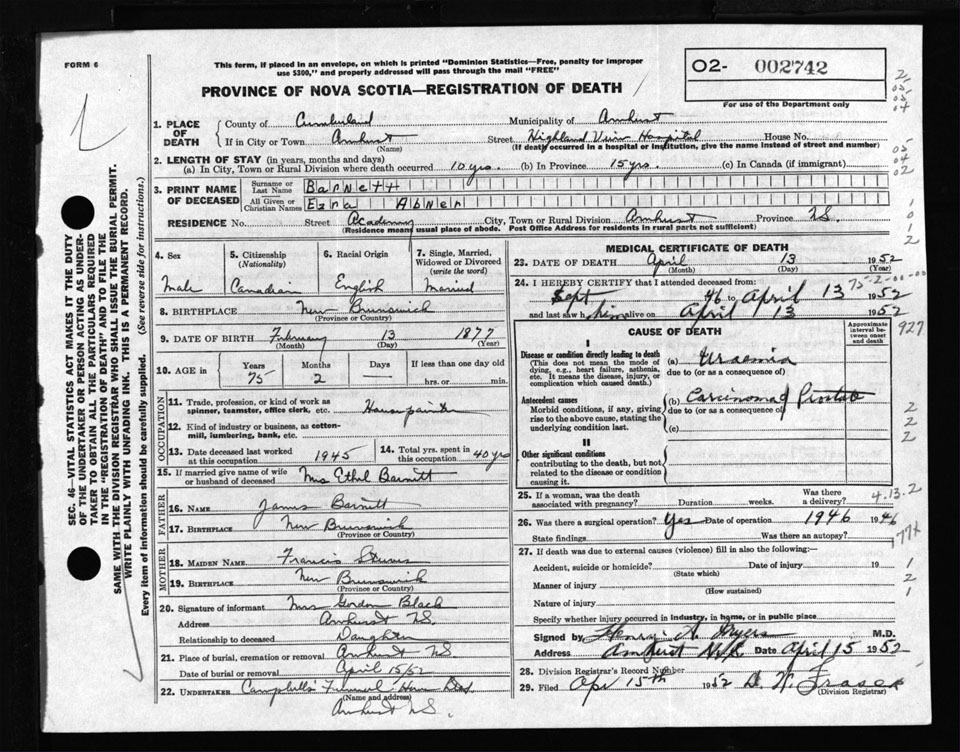 FORM 6
This form, if placed in an envelope, on which is printed "Dominion Statistics—Free, penalty for improper
use $300," and properly addressed will pass through the mail "FREE"
O2- 002742
PROVINCE OF NOVA SCOTIA—REGISTRATION OF DEATH
For use of the Department only
1. PLACE OF DEATH
County of Cumberland Municipality of Amherst
If in City or Town Amherst Street Highland View Hospital House No.
(Name) (If death occurred in a hospital or institution, give the name instead of street and number)
2. LENGTH OF STAY (in years, months and days)
(a) In City, Town or Rural Division where death occurred 10 yrs. (b) In Province 15 yrs. (c) In Canada (if immigrant)
3. PRINT NAME OF DECEASED
Surname or Last Name Barnett
All Given or Christian Names Ezra Abner
RESIDENCE No. Street Academy City, Town or Rural Division Amherst Province N.S.
(Residence means usual place of abode. Post Office Address for residents in rural parts not sufficient)
4. Sex
Male
5. Citizenship
(Nationality)
Canadian
6. Racial Origin
English
7. Single, Married, Widowed or Divorced
(write the word)
Married
8. BIRTHPLACE New Brunswick
(Province or Country)
9. DATE OF BIRTH February 13 1877
(Month) (Day) (Year)
10. AGE in
Years 75 Months 2 Days If less than one day
hrs. or min.
OCCUPATION
11. Trade, profession, or kind of work as
spinner, teamster, office clerk, etc. House painter
12. Kind of industry or business, as cotton-
mill, lumbering, bank, etc.
13. Date deceased last worked
at this occupation 1945
14. Total yrs. spent in
this occupation 40 yrs
15. If married give name of wife
or husband of deceased Mrs Ethel Barnett
FATHER
16. Name James Barnett
17. Birthplace New Brunswick
(Province or Country)
MOTHER
18. MAIDEN NAME Francis
19. BIRTHPLACE New Brunswick
(Province or Country)
20. Signature of informant Mrs Gordon Black
Address Amherst N.S.
Relationship to deceased Daughter
21. Place of burial, cremation or removal Amherst N.S.
Date of burial or removal April 15/52
22. UNDERTAKER Campbells Funeral Home
(Name and address)
Amherst N.S.
MEDICAL CERTIFICATE OF DEATH
23. DATE OF DEATH April 13 1952
(Month) (Day) (Year)
24. I HEREBY CERTIFY that I attended deceased from:
75-2-00-00
Sept 46 to April 13 1952
and last saw him alive on April 13 1952
CAUSE OF DEATH
Approximate interval between onset and death
927
I
Disease or condition directly leading to death
(This does not mean the mode of
dying, e.g., heart failure, asthenia,
etc. It means the disease, injury, or
complication which caused death.)
(a) Uraemia
due to (or as a consequence of)
Antecedent causes
Morbid conditions, if any, giving
rise to the above cause, stating the
underlying condition last.
(b) Carcinoma of Prostate
due to (or as a consequence of)
(c)
II
Other significant conditions
contributing to the death, but not
related to the disease or condition
causing it.
25. If a woman, was the death
associated with pregnancy? Duration weeks. Was there
a delivery?
4.13.2
26. Was there a surgical operation? Yes Date of operation 1946 1946
State findings Was there an autopsy?
177x
27. If death was due to external causes (violence) fill in also the following:—
Accident, suicide or homicide? Date of injury 19
(State which)
Manner of injury
(How sustained)
Nature of injury
Specify whether injury occurred in industry, in home, or in public place
Signed by Henry A Myers M.D.
Address Amherst N.S. Date April 15 1952
28. Division Registrar's Record Number
29. Filed Apr 15th 1952 D. W. Fraser
(Division Registrar)
SEC. 46—VITAL STATISTICS ACT MAKES IT THE DUTY
OF THE UNDERTAKER OR PERSON ACTING AS UNDER-
TAKER TO OBTAIN ALL THE PARTICULARS REQUIRED
IN THE "REGISTRATION OF DEATH" AND TO FILE THE
SAME WITH THE DIVISION REGISTRAR WHO SHALL ISSUE THE BURIAL PERMIT.
WRITE PLAINLY WITH UNFADING INK. THIS IS A PERMANENT RECORD.
Every item of information should be carefully supplied. (See reverse side for instructions.)